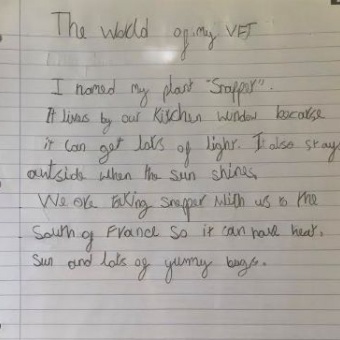 The world of my VFT
I named my plant "Snapper".
It lives by our Kitchen window because
it can get lots of light. It also stays
outside when the sun shines,
We are taking snapper with us to the
South of France so it can have heat.
Sun and lots of yummy bugs.